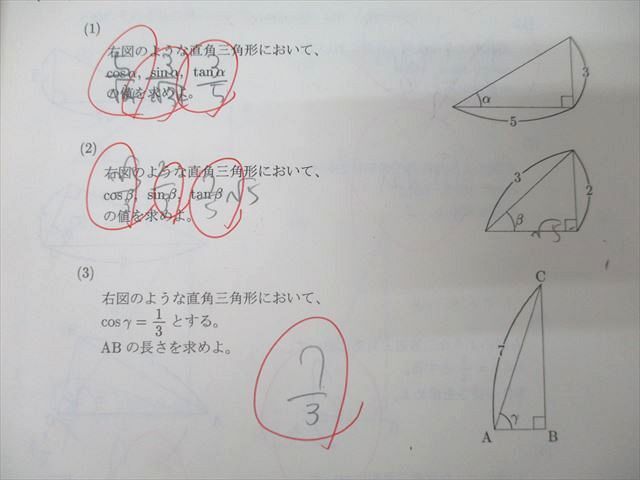 (1)
右図のような直角三角形において、
cosα, sinα, tanα
の値を求めよ。
3
5
α
3
5
(2)
右図のような直角三角形において、
cosβ, sinβ, tanβ
の値を求めよ。
√5
3
2
β
√5
(3)
右図のような直角三角形において、
cosγ = 1/3 とする。
ABの長さを求めよ。
7
3
C
7
γ
A
B